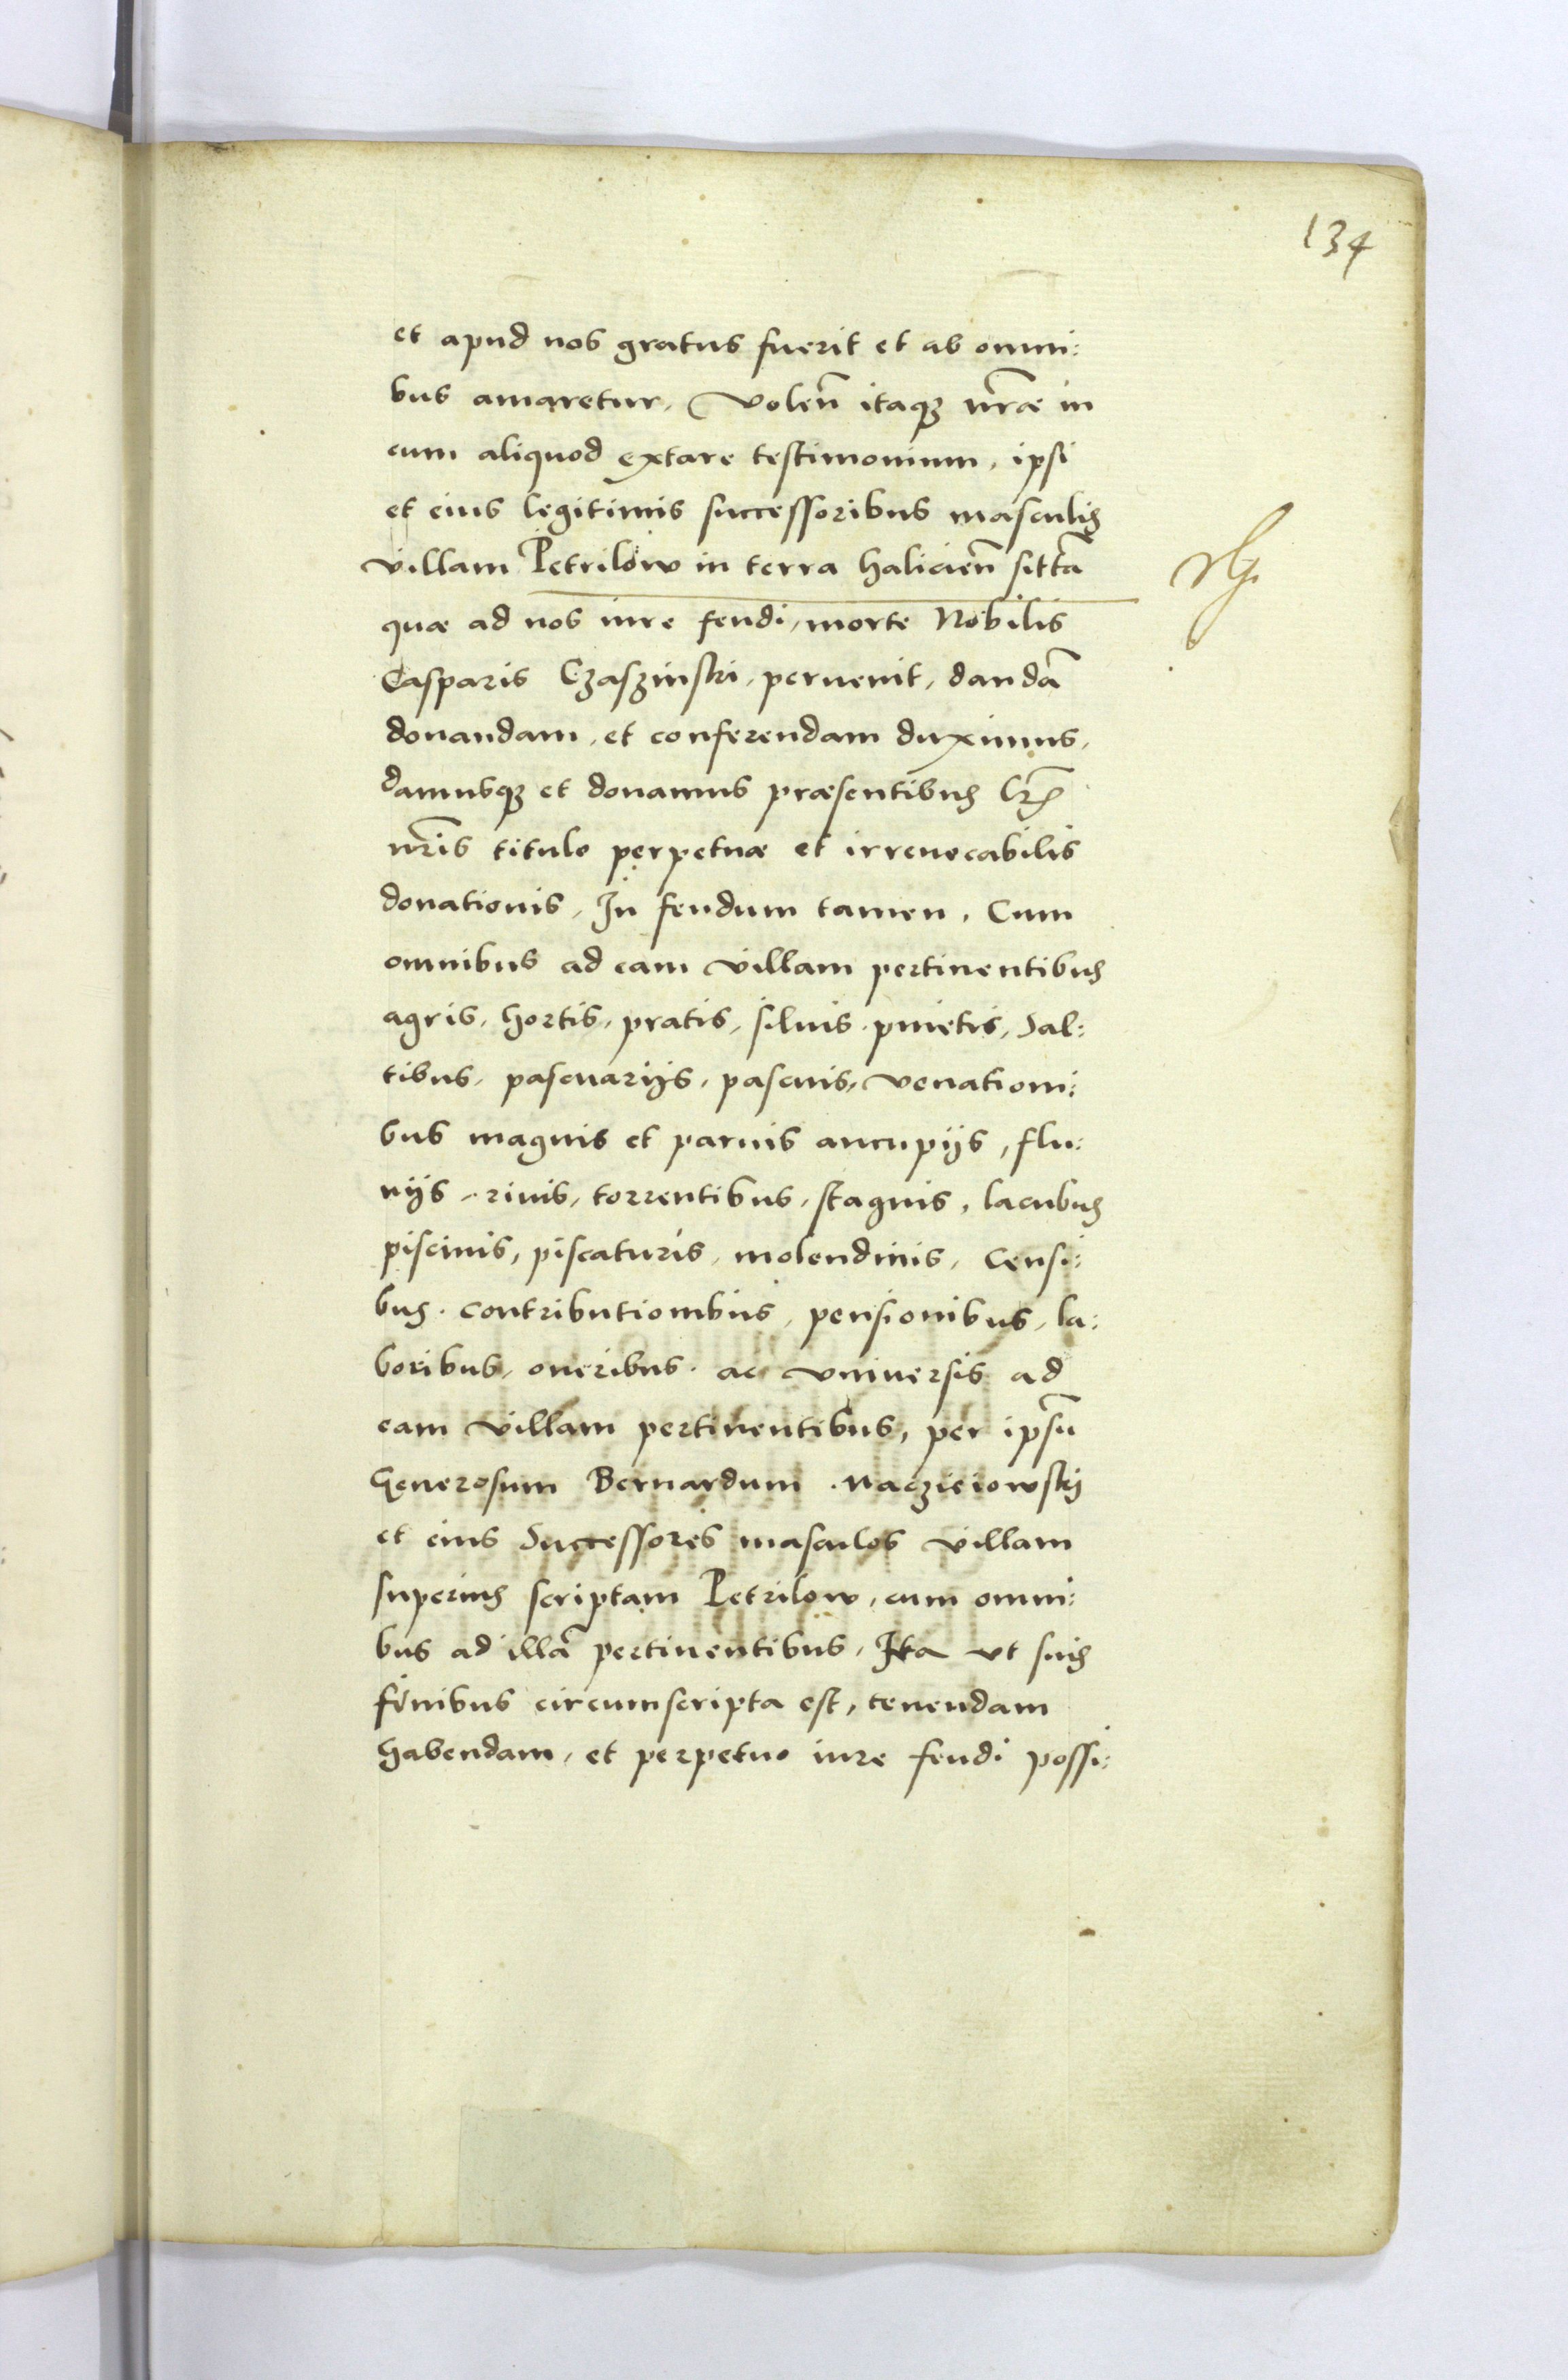 134
et apud nos gratus fuerit et ab omni:
bus amaretur. Volen̄ itaqꝫ nr̄ae in
eum aliquod extare testimonium, ipsi
et eius legitimis successoribus masculis
villam Petrilow in terra halicien̄ sittā
quae ad nos iure feudi, morte Nobilis
Casparis Czaszinski, peruenit, dandā
donandam, et conferendam duximus,
damusqꝫ et donamus praesentibus lr̄is
nr̄is titulo perpetuae et irreuocabilis
donationis, In feudum tamen, Cum
omnibus ad eam villam pertinentibus
agris, hortis, pratis, siluis, pinetis, Sal:
tibus, pascuarijs, pascuis, venationi:
bus magnis et paruis aucupijs, flu:
uijs, riuis, torrentibus, stagnis, lacubus
piscinis, piscaturis, molendinis, Censi:
bus, contributionibus, pensionibus, la:
boribus, oneribus, ac vniuersis ad
eam villam pertinentibus, per ipsū
Generosum Bernardum Maczieiowskij
et eius Successores masculos villam
superius scriptam Petrilow, cum omni:
bus ad illā pertinentibus, Ita vt suis
finibus circumscripta est, tenendam
habendam, et perpetuo iure feudi possi: